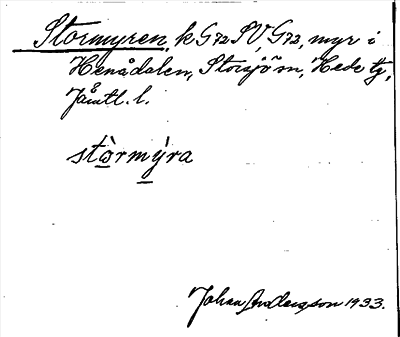 Stormyren, k G72 SV, G73, myr i
Henådalen, Storsjö sn, Hede tg,
Jämtl. l.
stòrmýra
Johan Anderson 1933.